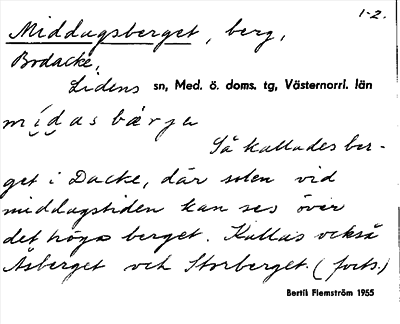 1-2.
Middagsberget, berg,
Bodacke,
Lidens sn, Med. ö. doms. tg, Västernorrl. län
mídasbärjə
Så kallades ber-
get i Dacke, där solen vid
middagstiden kan ses över
det höga berget. Kallas också
Åsberget och Storberget. (forts.)
Bertil Flemström 1955